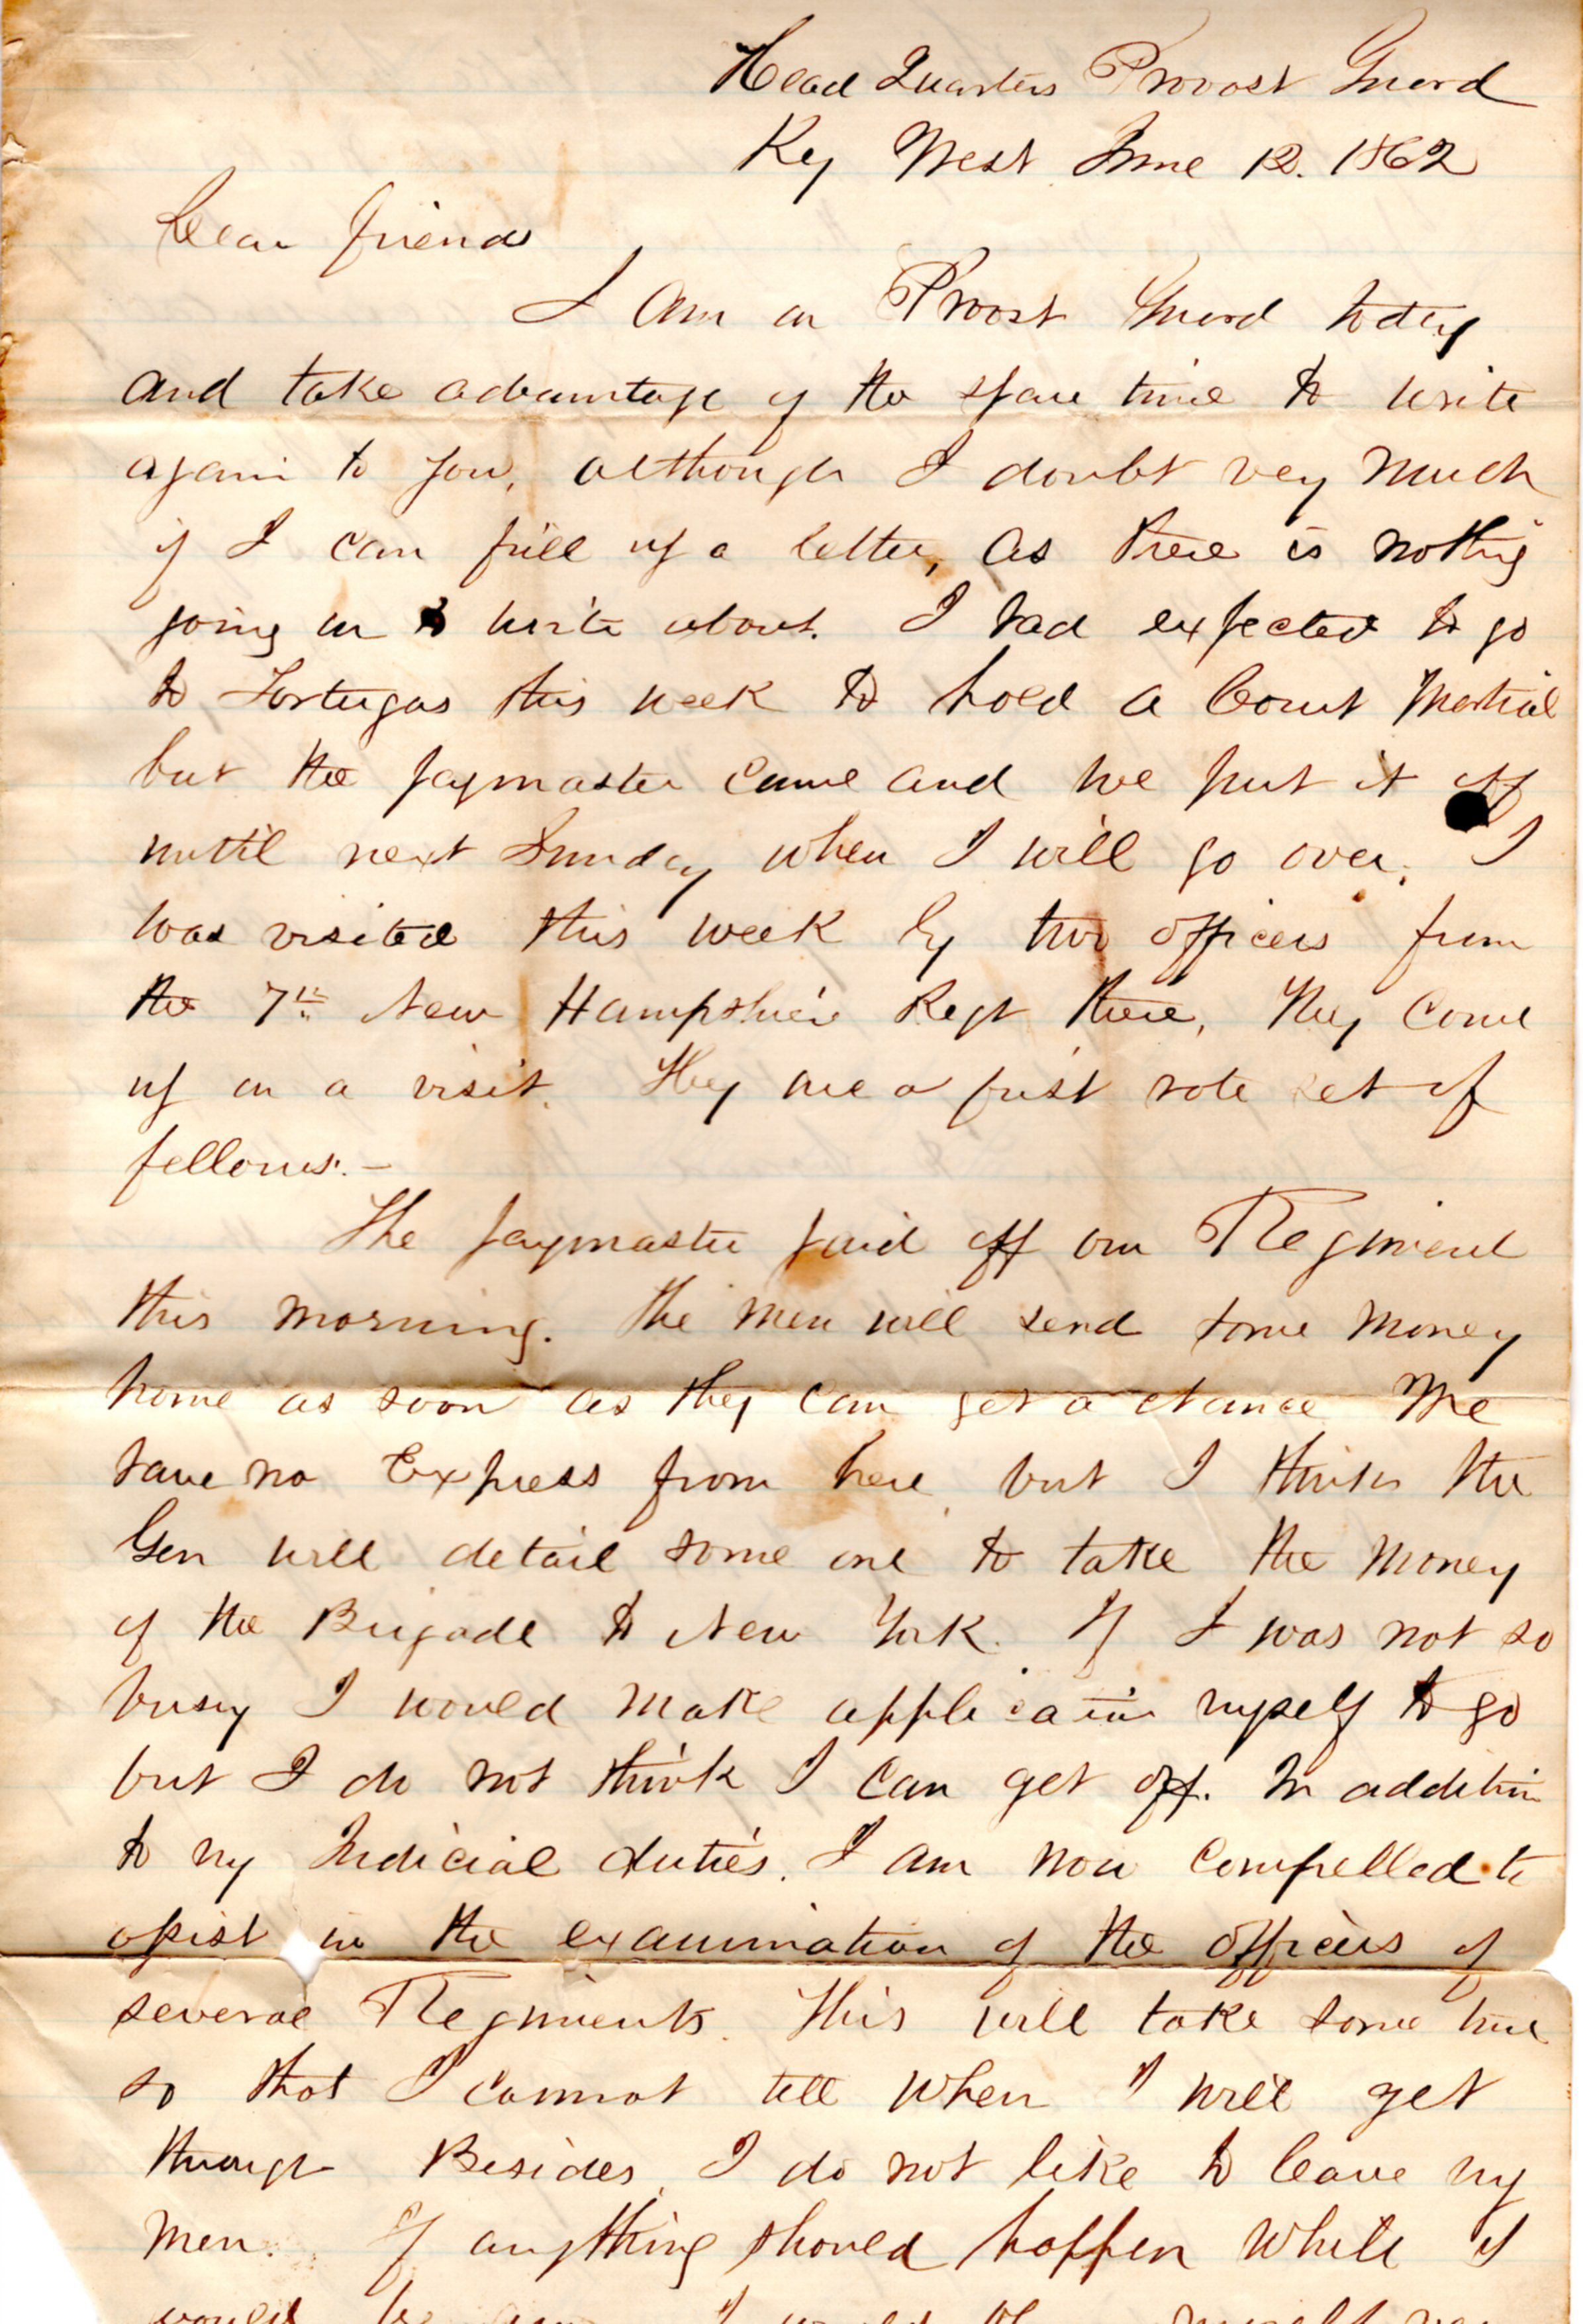 Head Quarters Provost Guard
Key West June 12. 1862
Dear friends
I am on Provost Guard today
and take advantage of the spare time to write
again to you, although I doubt very much
if I can fill up a letter, as there is nothing
going on to write about. I had expected to go
to Tortugas this week to hold a Court Martial
but the paymaster came and we put it off
until next Sunday when I will go over. I
was visited this week by two officers from
the 7th New Hampshire Regt there, They come
up on a visit. They are a first rate set of
fellows. -
The paymaster paid off our Regiment
this morning. The men will send some money
home as soon as they can get a chance We
have no Express from here, but I think the
Gen will detail some one to take the money
of the Brigade to New York. If I was not so
busy I would make application myself to go
but I do not think I can get off. In addition
to my Judicial duties, I am now compelled to
assist in the examination of the officers of
several Regiments. This will take some time
so that I cannot tell when I will get
through Besides, I do not like to leave my
men. If anything should happen while I
would be I would